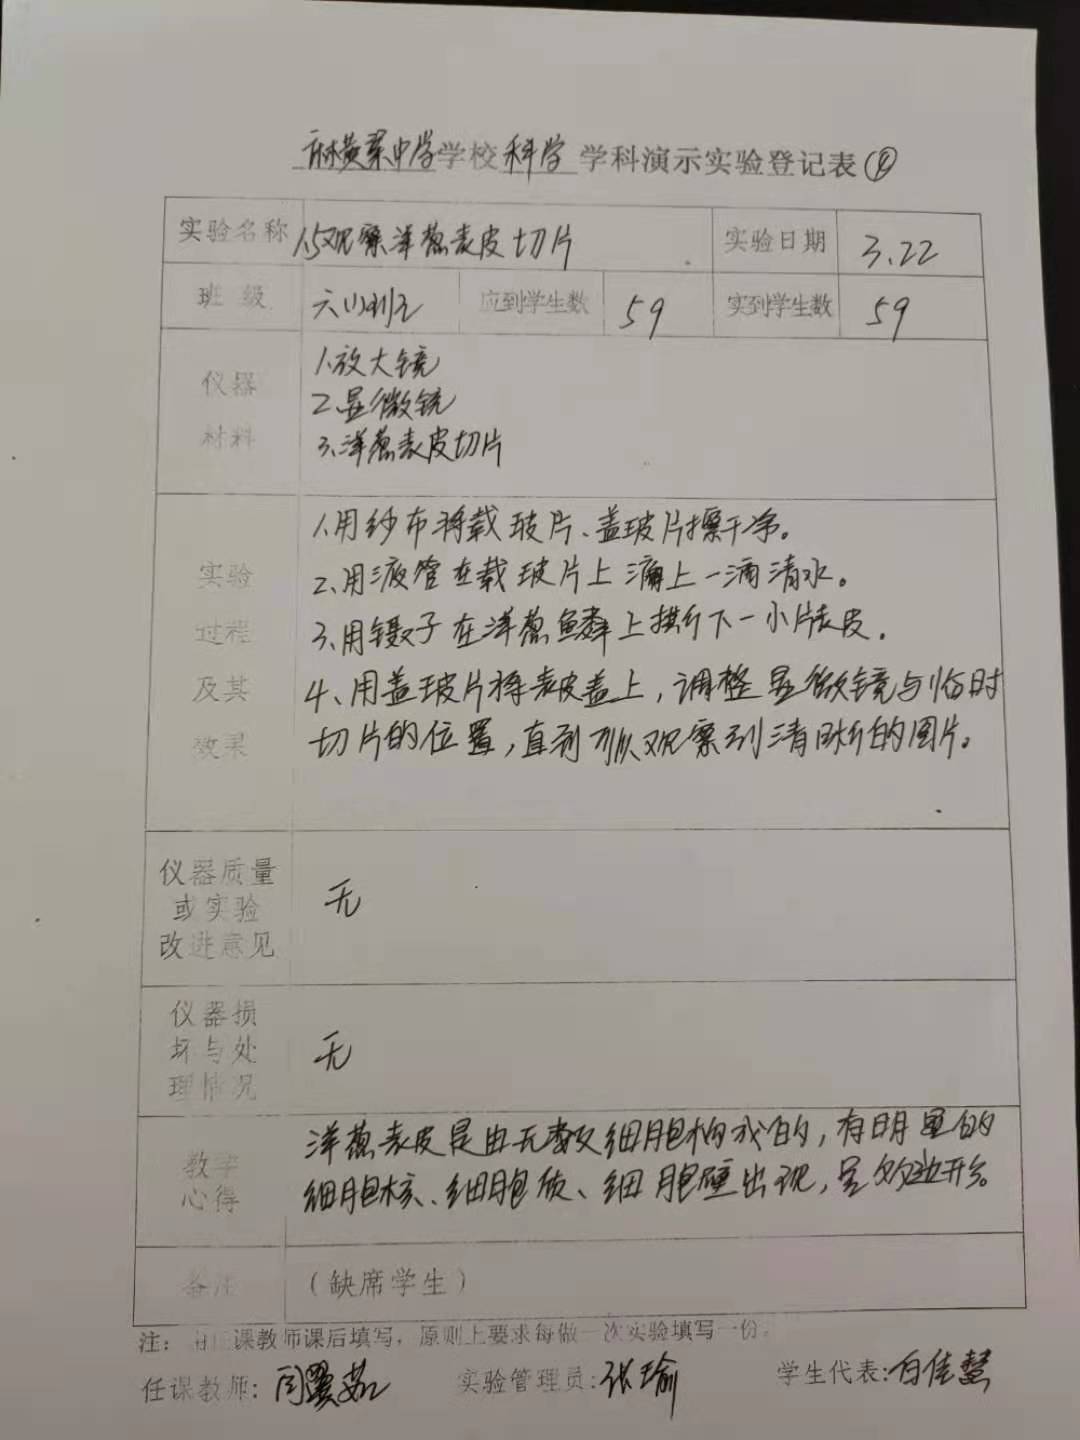 麻黄梁中学学校科学学科演示实验登记表
实验名称 1.5观察洋葱表皮切片 实验日期 3.22
班级 六(1)班 应到学生数 59 实到学生数 59
仪器
材料
1.放大镜
2.显微镜
3.洋葱表皮切片
实验
过程
及其
效果
1.用纱布将载玻片、盖玻片擦干净。
2.用液管在载玻片上滴上一滴清水。
3.用镊子在洋葱鳞上撕下一小片表皮.
4、用盖玻片将表皮盖上,调整显微镜与临时
切片的位置,直到可以观察到清晰的图片。
仪器质量
或实验
改进意见
无
仪器损
坏与处
理情况
无
教学
心得
洋葱表皮是由无数细胞构成的,有明显的
细胞核、细胞质、细胞壁出现,呈多边形。
备注 (缺席学生)
注: 由任课教师课后填写,原则上要求每做一次实验填写一份。
任课教师: 茹 实验管理员:张瑜 学生代表:白佳慧